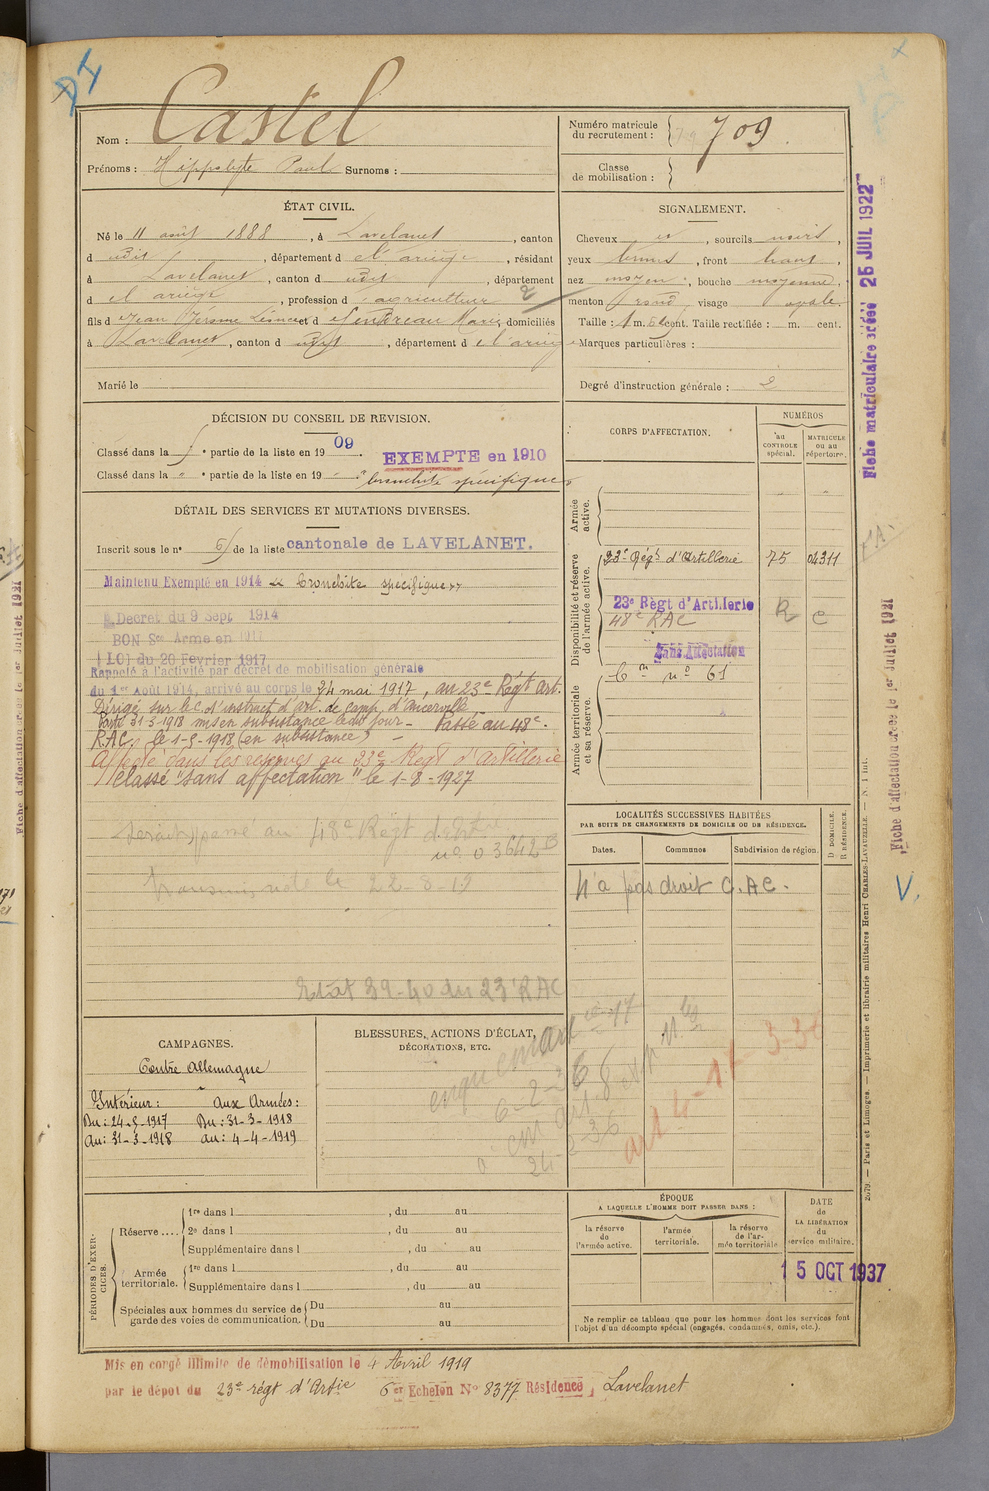 Castel
Nom :
Prénoms : Hippolyte Paul Surnoms :
Numéro matricule du recrutement : 709
Classe de mobilisation :
ÉTAT CIVIL.
Né le 11 août 1888, à Lavelanet, canton
d udit, département d e l'ariège, résidant
à Lavelanet, canton d udit, département
d e l'ariège, profession d agriculteur 2
fils d Jean Jérome et d Marie, domiciliés
à Lavelanet, canton d udit, département d e l'ariège
Marié le
SIGNALEMENT.
Cheveux et, sourcils noirs,
yeux, front haut,
nez moyen, bouche moyenne,
menton rond, visage ovale.
Taille : 1 m. cent. Taille rectifiée : m. cent.
Marques particulières :
Degré d'instruction générale : 2
DÉCISION DU CONSEIL DE REVISION.
Classé dans la partie de la liste en 1909
EXEMPTÉ en 1910
Classé dans la " partie de la liste en 19 " bronchite spécifique
DÉTAIL DES SERVICES ET MUTATIONS DIVERSES.
Inscrit sous le n° 6 de la liste cantonale de LAVELANET.
Maintenu Exempté en 1914 Bronchite spécifique
Decret du 9 Sept 1914
BON Sce Armé en 1917
LOI du 20 Fevrier 1917
Rappelé à l'activité par décret de mobilisation générale
du 1er Août 1914, arrivé au corps le 24 mai 1917, au 23e Régt art.
Dirigé sur le c. d'instruct d'art. de camp. d'ancerville
Parti 31-3-1918 mis en subsistance le dit jour - Passé au 48e
R.A.C. le 1-5-1918 (en subsistance) -
Affecté dans les réserves au 23e Régt d'Artillerie
Classé "sans affectation" le 1-8-1927
passé au 48e Régt
n° 03642
le 22-8-19
Etat 39-40 du 23 RAC
CORPS D'AFFECTATION.
NUMÉROS
au CONTROLE spécial.
MATRICULE ou au répertoire.
Armée active.
Disponibilité et réserve de l'armée active.
23e Régt d'Artillerie 75 04311
23e Règt d'Artillerie
48e RAC R C
Sans Affectation
Armée territoriale et sa réserve.
n° 61
LOCALITÉS SUCCESSIVES HABITÉES
PAR SUITE DE CHANGEMENTS DE DOMICILE OU DE RÉSIDENCE.
D DOMICILE.
R RÉSIDENCE.
Dates. Communes Subdivision de région.
N'a pas droit C.A.C.
CAMPAGNES.
Contre Allemagne
Intérieur : Aux Armées :
Du : 24-5-1917 Du : 31-3-1918
au : 31-3-1918 au : 4-4-1919
BLESSURES, ACTIONS D'ÉCLAT,
DÉCORATIONS, ETC.
PÉRIODES D'EXERCICES.
Réserve ....
1re dans l , du au
2e dans l , du au
Supplémentaire dans l , du au
Armée territoriale.
1re dans l , du au
Supplémentaire dans l , du au
Spéciales aux hommes du service de garde des voies de communication.
Du au
Du au
ÉPOQUE
A LAQUELLE L'HOMME DOIT PASSER DANS :
la réserve de l'armée active.
l'armée territoriale.
la réserve de l'armée territoriale
DATE de LA LIBÉRATION du service militaire.
15 OCT 1937
Ne remplir ce tableau que pour les hommes dont les services font
l'objet d'un décompte spécial (engagés, condamnés, omis, etc.).
Mis en congé illimité de démobilisation le 4 Avril 1919
par le dépôt du 23e régt d'Artie 6er Echelon N° 8377 Résidence, Lavelanet
Fiche matriculaire créée 25 JUIL 1922
Fiche d'affectation créée le 1er Juillet 1921
V.
2679. — Paris et Limoges. — Imprimerie et librairie militaires Henri CHARLES-LAVAUZELLE. — N. 1 int.
Fiche d'affectation créée le 1er Juillet 1921